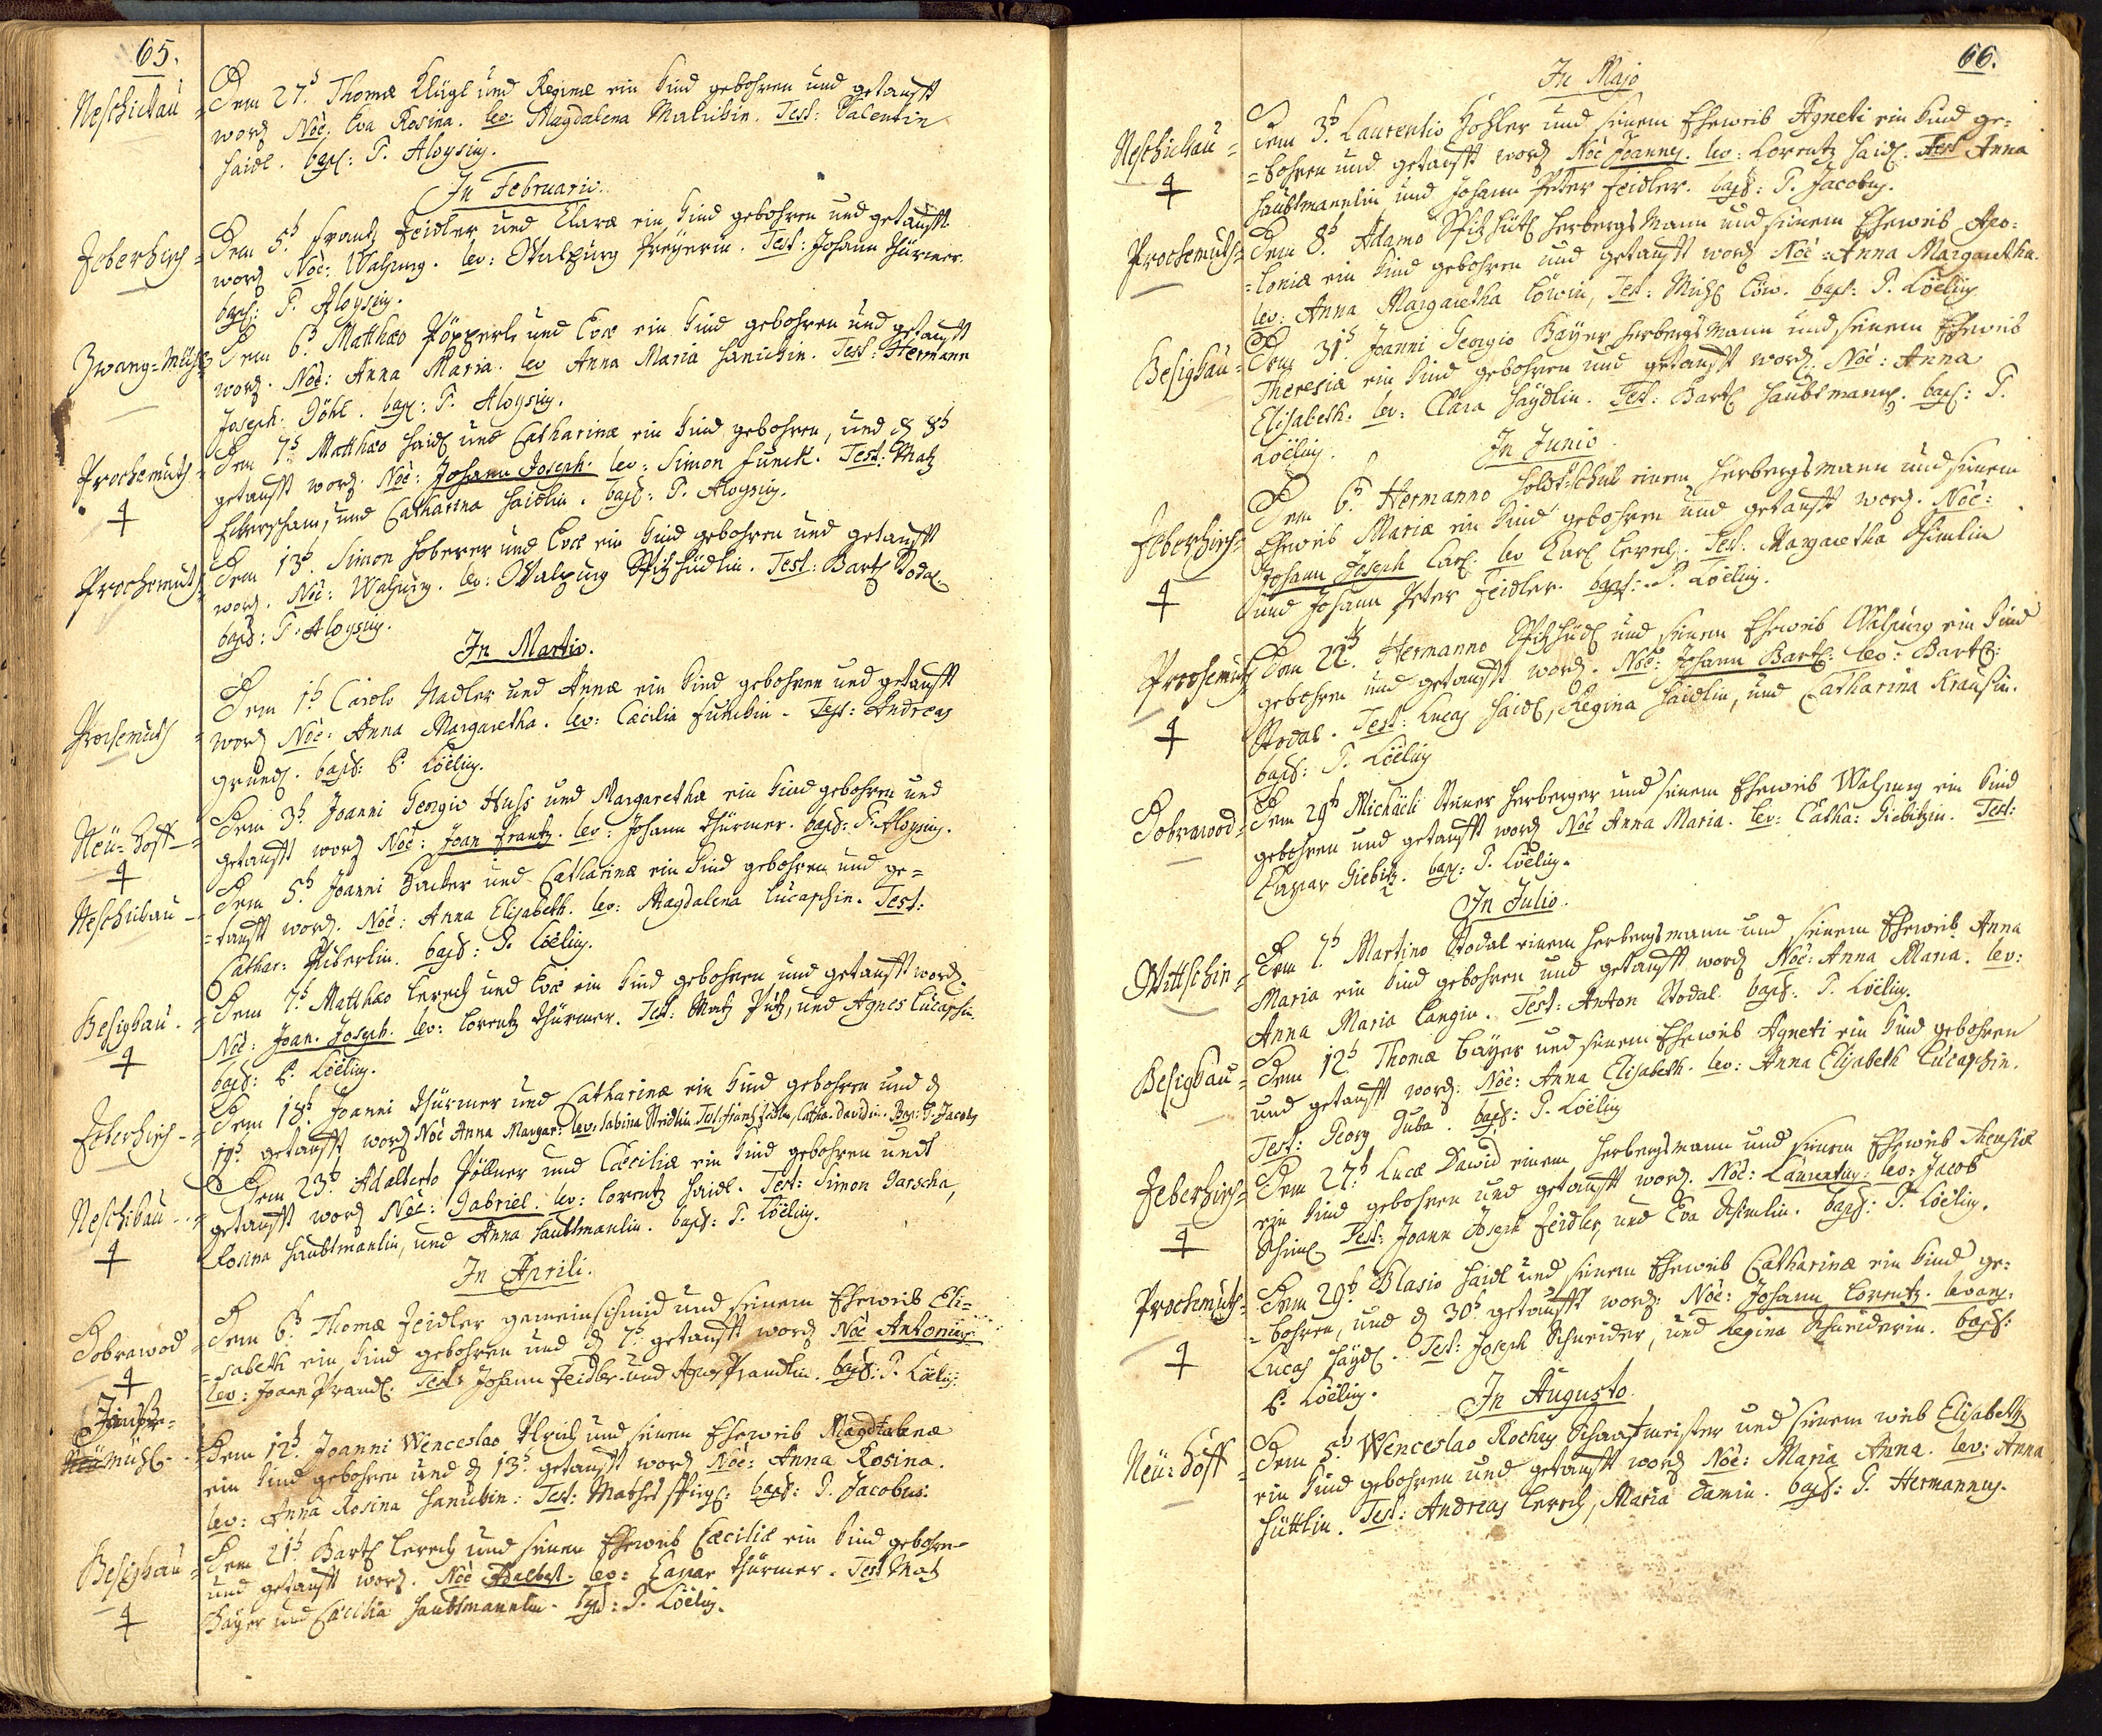 65.
Neschikau = Dem 27t. Thomæ Klügl und Reginæ ein Kind gebohren und getaufft
word. Noe: Eva Rosina. lev: Magdalena Malickin. Test: Valentin
Haidl. bapt: P. Aloysius.
In Februario.
Zeberhisch = Dem 5t. Frantz Zeidler und Claræ ein Kind gebohren und getaufft
word. Noe: Walpurg. lev: Walpurg Preyerin. Test: Johann Thürmer.
bapt: P. Aloysius.
Zwang-Mühl = Dem 6t. Matthæo Pöpperl und Evæ ein Kind gebohren und getaufft
word. Noe: Anna Maria. lev Anna Maria Hanickin. Test: Hermann
Joseph Döhl. bapt: P. Aloysius.
Prochomuth = Dem 7t Matthæo Haidl und Catharinæ ein Kind gebohren, und d 8t
getaufft word. Noe: Johann Joseph. lev: Simon Funck. Test: Matz
und Catharina Haidlin. bapt: P. Aloysius.
Prochomuth = Dem 13t. Simon Hoberer und Evæ ein Kind gebohren und getaufft
word. Noe: Walpurg. lev: Walpurg Spitzhüdlin. Test: Bartl Stodal.
bapt: P. Aloysius.
In Martio.
Prochomuth = Dem 1t Carolo Nadler und Annæ ein Kind gebohren und getaufft
word Noe: Anna Margaretha. lev: Cæcilia Funckin. Test: Andreas
Gründl. bapt: P. Loëlius.
Neü-Hoff = Dem 3t. Joanni Georgio Huss und Margarethæ ein Kind gebohren und
getaufft word Noe: Joan Frantz. lev: Johann Thürmer. bapt: P. Aloysius.
Neschikau = Dem 5t. Joanni Hacker und Catharinæ ein Kind gebohren und ge=
=taufft word. Noe: Anna Elisabeth. lev: Magdalena Lucaschin. Test:
Cathar: Biberlin. bapt: P. Loëlius.
Besighau = Dem 7t. Matthæo Lerch und Evæ ein Kind gebohren und getaufft word.
Noe: Joan. Joseph. lev: Lorentz Thürmer. Test: Matz Pütz, und Agnes Lucaschin.
bapt: P. Loëlius.
Zeberhisch = Dem 18t. Joanni Thürmer und Catharinæ ein Kind gebohren und d
19t. getaufft word Noe Anna Margar: lev: Sabina Steidlin Test: Frantz Zeidler, Catha: Davidin. Bap: P. Jacobus
Neschikau = Dem 23t. Adalberto Pöllner und Cæciliæ ein Kind gebohren undt
getaufft word Noe: Gabriel. lev: Lorentz Haidl. Test: Simon Garscha,
Rosina Haubtmanlin, und Anna Haubtmanlin. bapt: P. Loëlius.
In Aprili.
Dobrawod = Dem 6t. Thomæ Zeidler gemeinschmid und seinem Eheweib Eli=
=sabeth ein Kind gebohren und d 7t. getaufft word Noe Antonius
lev: Joann Prandl. Test: Johann Zeidler und Agnes Prandlin. bapt: P. Loëlius.
Mühl = Dem 12t. Joanni Wenceslao Ulrich und seinem Eheweib Magdalenæ
ein Kind gebohren und d 13t. getaufft word Noe: Anna Rosina.
lev: Anna Rosina Hanickin: Test: Mathes. bapt: P. Jacobus.
Besighau = Dem 21t. Bartl Lerch und seinem Eheweib Cæciliæ ein Kind gebohren
und getaufft word. Noe Adalbert. lev: Caspar Thürmer. Test Matz
Bayer und Cæcilia Haubtmannlin. bapt: P. Loëlius.
66.
In Majo
Neschikau = Dem 3t. Laurentio Hohler und seinem Eheweib Agneti ein Kind ge=
=bohren und getaufft word Noe Joannes. lev: Lorentz Haidl. Test Anna
Haubtmannlin und Johann Peter Zeidler. bapt: P. Jacobus.
Prochomuth = Dem 8t. Adamo Spitzhütl Herbergsmann und seinem Eheweib Apo=
=loniæ ein Kind gebohren und getaufft word Noe: Anna Margaretha.
lev: Anna Margaretha Löwin, Test: Michl Löw. bapt: P. Loëlius
Besighau = Dem 31t. Joanni Georgio Bayer Herbergsmann und seinem Eheweib
Theresiæ ein Kind gebohren und getaufft word. Noe: Anna
Elisabeth. lev: Clara Haÿdlin. Test: Bartl Haubtmann. bapt: P.
Loëlius.
In Junio.
Zeberhisch = Dem 6t. Hermanno Holdschuh einem Herbergsmann und seinem
Eheweib Mariæ ein Kind gebohren und getaufft word. Noe:
Johann Joseph Carl. lev Carl Lerch. Test: Margaretha Schimlin
und Johann Peter Zeidler. bapt: P. Loëlius.
Prochomuth Dem 22t. Hermanno Spitzhüdl und seinem Eheweib Walpurg ein Kind
gebohren und getaufft word. Noe: Johann Bartl: lev: Bartl:
Stodal. Test: Lucas Haidl, Regina Haidlin, und Catharina Krausin.
bapt: P. Loëlius
Dobrawod = Dem 29t Michaëli Steiner Herberger und seinem Eheweib Walpurg ein Kind
gebohren und getaufft word Noe Anna Maria. lev: Catha: Giebitzin. Test:
Caspar Giebitz. bapt: P. Loëlius.
In Julio.
Wittschin = Dem 7t. Martino Stodal einem Herbergsmann und seinem Eheweib Anna
Maria ein Kind gebohren und getaufft word Noe: Anna Maria. lev:
Anna Maria Langin. Test: Anton Stodal. bapt: P. Loëlius.
Besighau = Dem 12t. Thomæ Bayer und seinem Eheweib Agneti ein Kind gebohren
und getaufft word. Noe: Anna Elisabeth. lev: Anna Elisabeth Lucaschin.
Test: Georg Duba. bapt: P. Loëlius
Zeberhisch = Dem 27t. Lucæ David einem Herbergsmann und seinem Eheweib Theresiæ
ein Kind gebohren und getaufft word. Noe: Laurentius. lev: Jacob
Schiml Test: Joann Joseph Zeidler, und Eva Schimlin. bapt: P. Loëlius.
Prochomuth = Dem 29t. Blasio Haidl und seinem Eheweib Catharinæ ein Kind ge=
=bohren, und d 30t getaufft word. Noe: Johann Lorentz. levans:
Lucas Haÿdl. Test: Joseph Schneider, und Regina Schneiderin. bapt:
P. Loëlius.
In Augusto.
Neü=Hoff = Dem 5t Wenceslao Rochus Schaafmeister und seinem weib Elisabeth
ein Kind gebohren und getaufft word Noe: Maria Anna. lev: Anna
Hüttlin. Test: Andreas Lerch, Maria Damin. bapt: P. Hermannus.